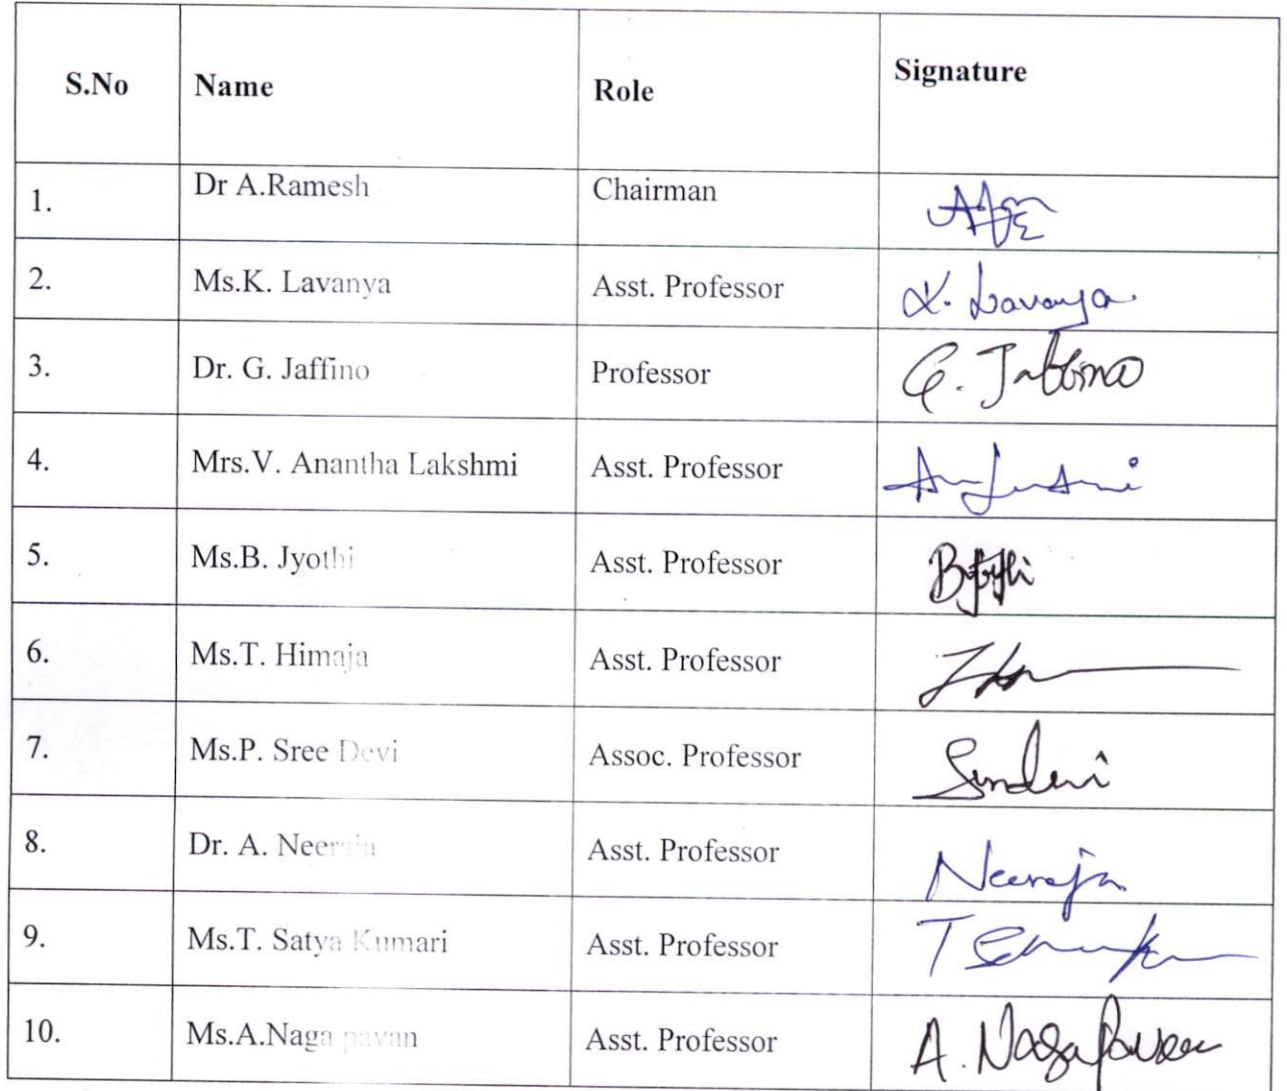 S.No Name Role Signature
1. Dr A.Ramesh Chairman
2. Ms.K. Lavanya Asst. Professor K. Lavanya
3. Dr. G. Jaffino Professor G. Jaffino
4. Mrs.V. Anantha Lakshmi Asst. Professor
5. Ms.B. Jyothi Asst. Professor BJyothi
6. Ms.T. Himaja Asst. Professor
7. Ms.P. Sree Devi Assoc. Professor
8. Dr. A. Neeraja Asst. Professor Neeraja
9. Ms.T. Satya Kumari Asst. Professor
10. Ms.A.Naga pavan Asst. Professor A. Naga Pavan